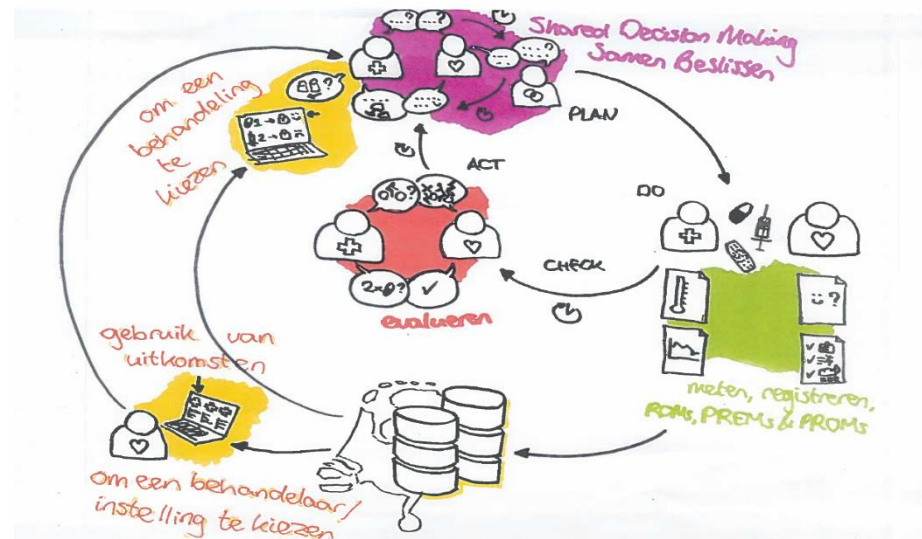 Shared Decision Making
Samen Beslissen
PLAN
om een
behandeling
te
kiezen
ACT
DO
CHECK
2x
?
✓
evalueren
gebruik van
uitkomsten
meten, registreren,
ROMs, PREMs & PROMs
om een behandelaar/
instelling te kiezen